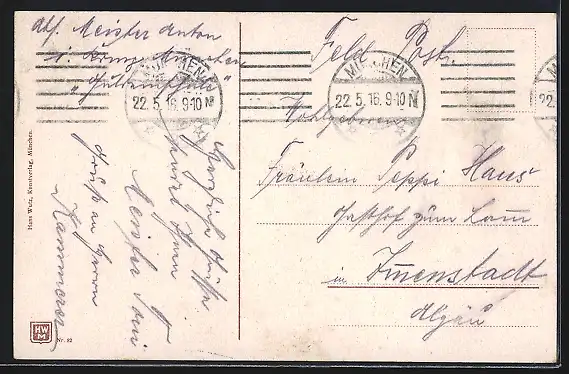 Abs. Meister Anton
Feld Post.
MÜNCHEN
22.5.16.9-10 N
MÜNCHEN
22.5.16.9-10 N
22
Wohlgeboren
Fräulein Peppi Haus
Gasthof zum Lamm
in Immenstadt
Algäu
Herzliche Grüße
Meister Toni
Gruß an Herrn
Kammerer
Hans Wutz, Kunstverlag, München.
HW
M
Nr. 82